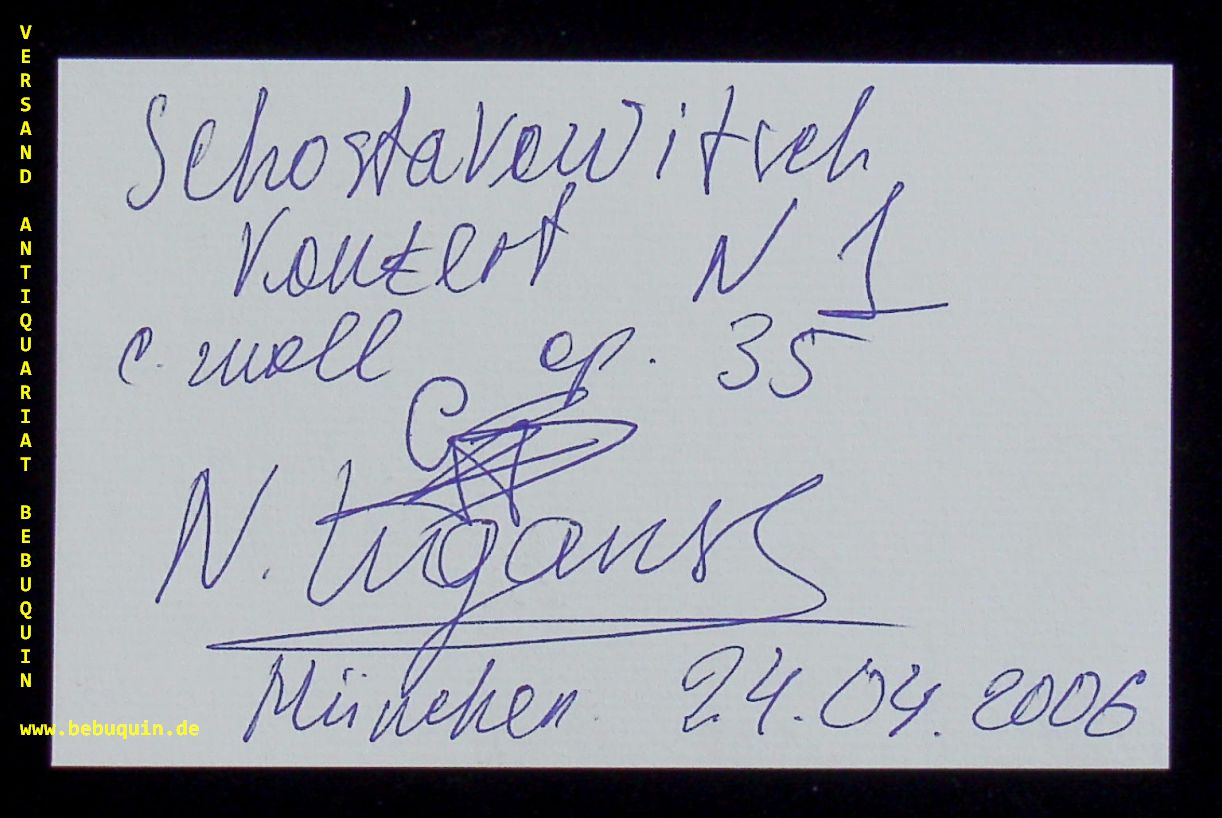 VERSAND ANTIQUARIAT BEBUQUIN
Schostakowitsch
Konzert N 1
c. moll op. 35
N. Lugansk
München 24.04.2006
www.bebuquin.de